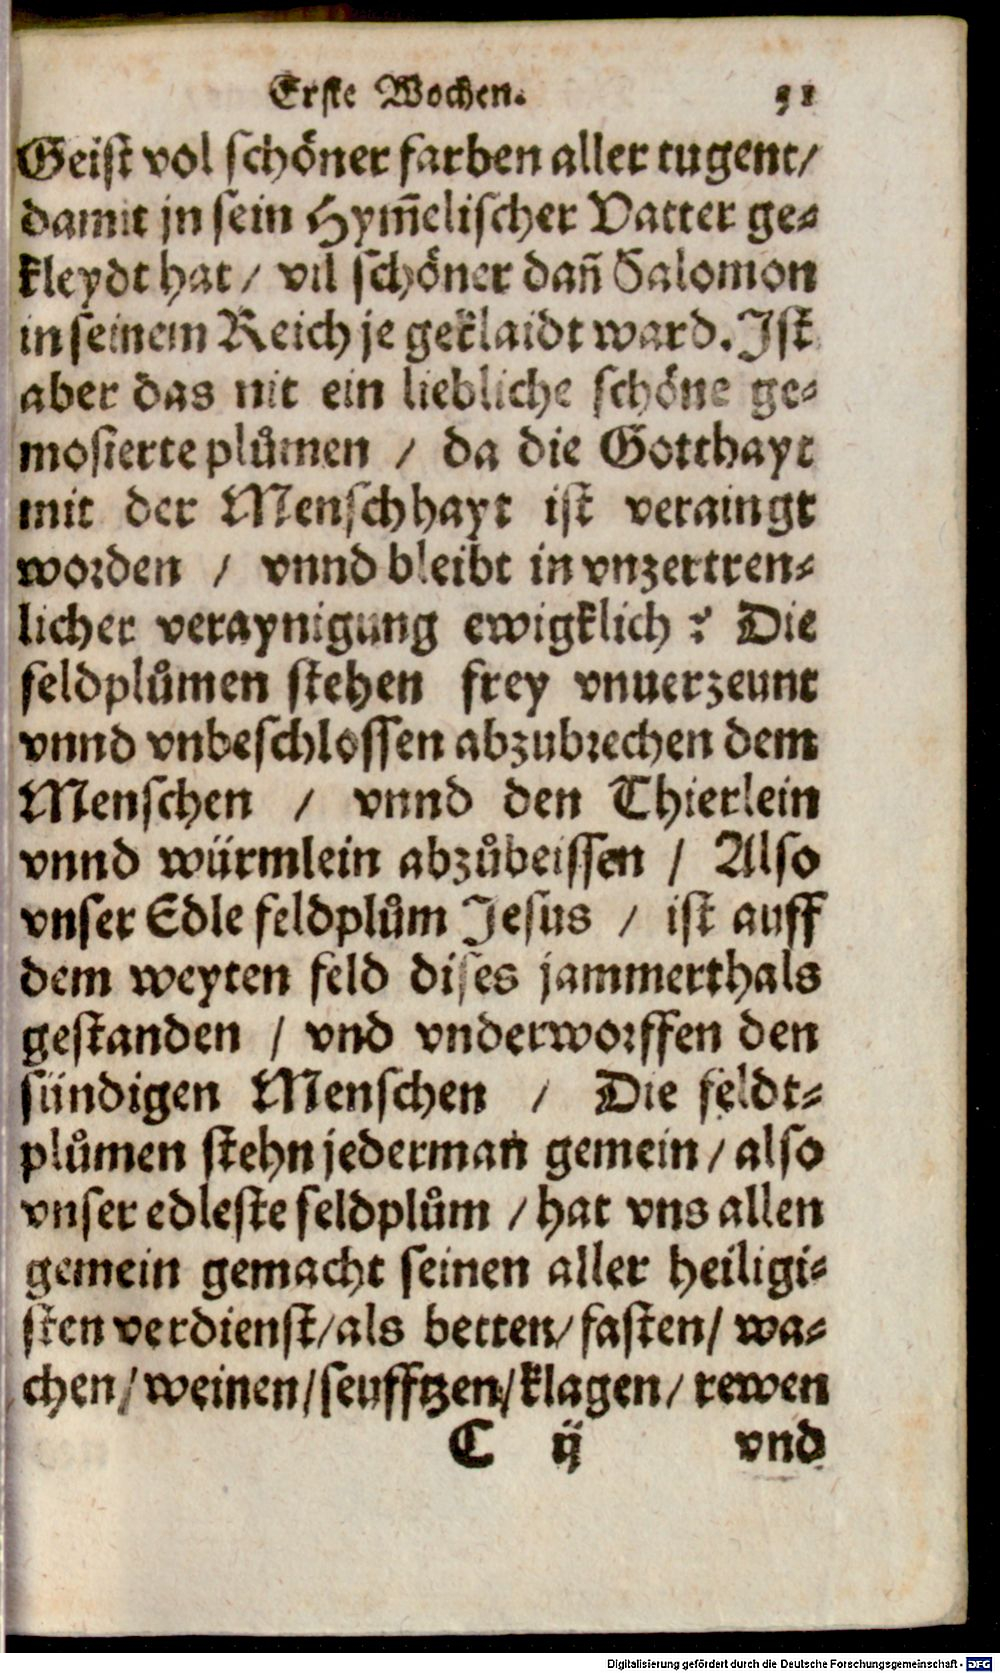 Erste Wochen. 51
Geist vol schöner farben aller tugent/
damit jn sein Hym̃elischer Vatter ge⸗
kleydt hat / vil schöner dañ Salomon
in seinem Reich je geklaidt ward. Ist
aber das nit ein liebliche schöne ge⸗
mosierte plůmen / da die Gotthayt
mit der Menschhayt ist veraingt
worden / vnnd bleibt in vnzertren⸗
licher veraynigung ewigklich? Die
feldplůmen stehen frey vnuerzeunt
vnnd vnbeschlossen abzubrechen dem
Menschen / vnnd den Thierlein
vnnd würmlein abzůbeissen / Also
vnser Edle feldplům Jesus / ist auff
dem weyten feld dises jammerthals
gestanden / vnd vnderworffen den
sündigen Menschen / Die feldt⸗
plůmen stehn jederman gemein / also
vnser edleste feldplům / hat vns allen
gemein gemacht seinen aller heiligi⸗
sten verdienst/als betten/ fasten/ wa⸗
chen/ weinen/seufftzen/klagen/ rewen
C ij vnd
Digitalisierung gefördert durch die Deutsche Forschungsgemeinschaft - DFG